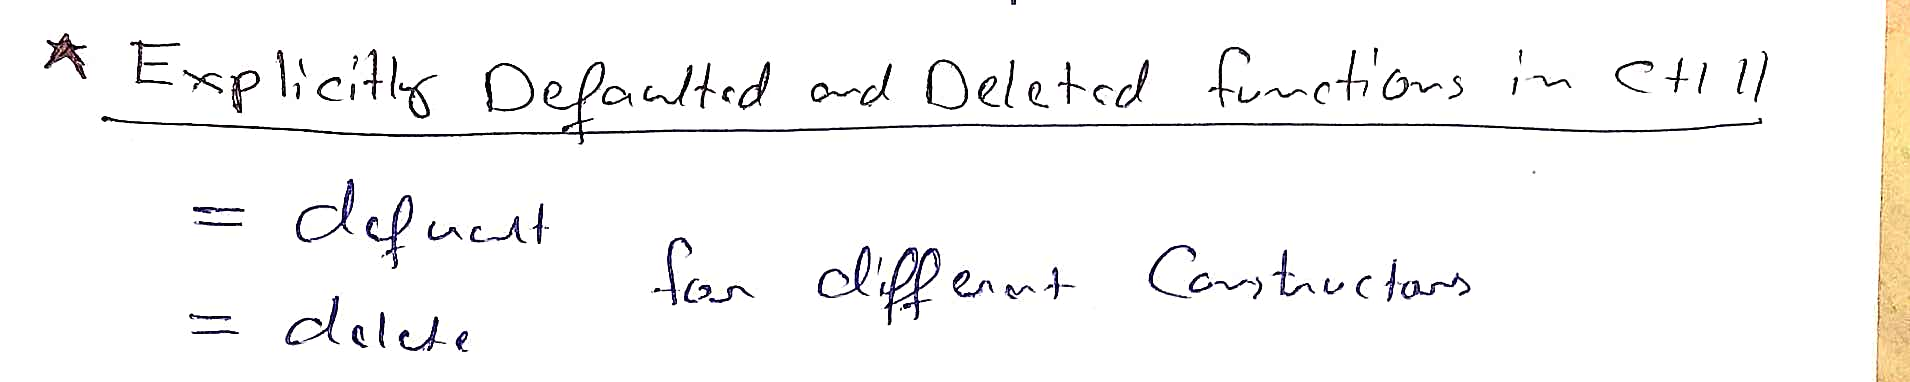 * Explicitly Defaulted and Deleted functions in C++ 11
= default
for different Constructors
= delete